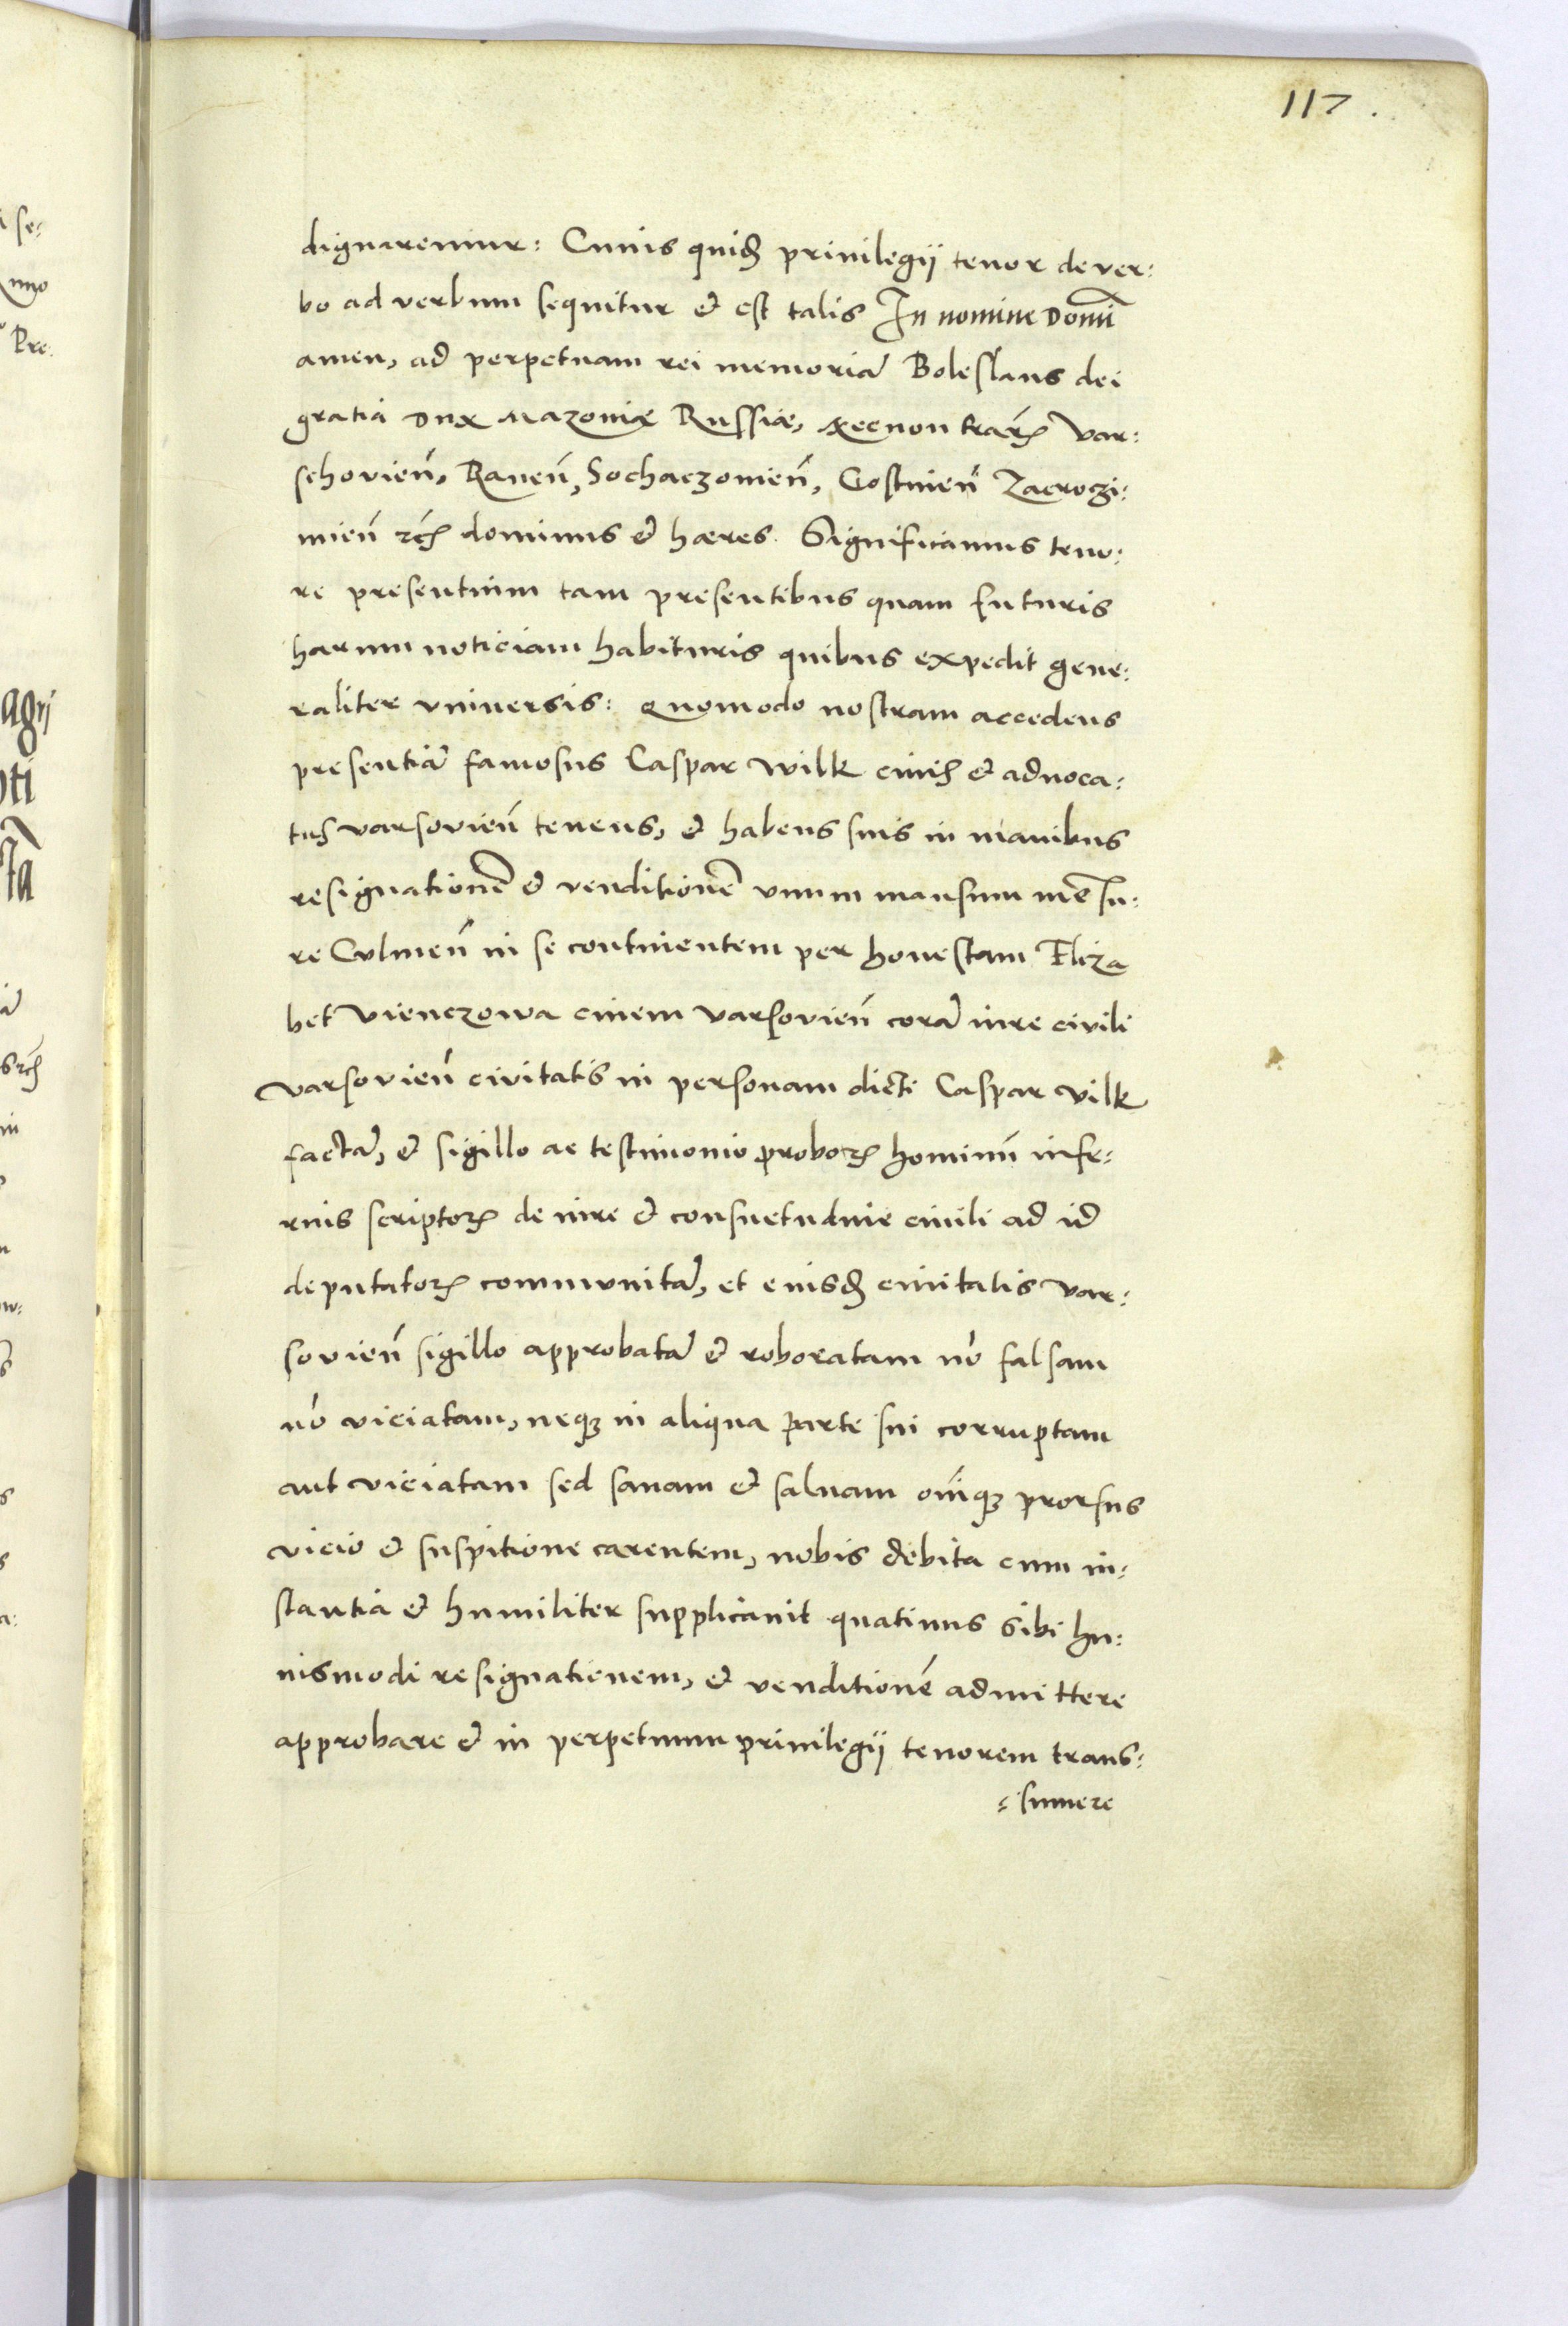 117.
dignaremur: Cuius quidẽ priuilegij tenor de ver:
bo ad verbum sequitur & est talis In nomine Domĩ
amen, ad perpetuam rei memoriã Boleslaus dei
gratia Dux Mazouiæ Russiæ, necnon trarũ Var:
schovieñ, Raueñ, Sochaczouieñ, Gostinieñ Zacroczi:
mieñ etc̃ dominus & hæres. Significamus teno:
re presentium tam presentibus quam futuris
harum noticiam habituris quibus expedit gene:
raliter vniuersis: Quomodo nostram accedens
presentiã famosus Caspar Wilk ciuis & aduoca:
tus varsovieñ tenens, & habens suis in manibus
resignationẽ & venditionẽ vnum mansum mẽsu:
re Culmeñ in se continentem per honestam Eliza
bet Vienczowa ciuem varsovieñ corã iure civili
varsovieñ civitatis in personam dicti Caspar Vilk
factã, & sigillo ac testimonio proborꝝ hominũ infe:
rius scriptorꝝ de iure & consuetudine ciuili ad id
deputatorꝝ communitã, et eiusdẽ ciuitatis var:
sovieñ sigillo approbatã & roboratam nõ falsam
nõ viciatam, neqꝫ in aliqua parte sui corruptam
aut viciatam sed sanam & saluam oĩqꝫ prorsus
vicio & suspitione carentem, nobis debita cum in:
stantia & humiliter supplicauit quatinus sibi hu:
iusmodi resignationem, & venditionẽ admittere
approbare & in perpetuum priuilegij tenorem trans:
:sumere